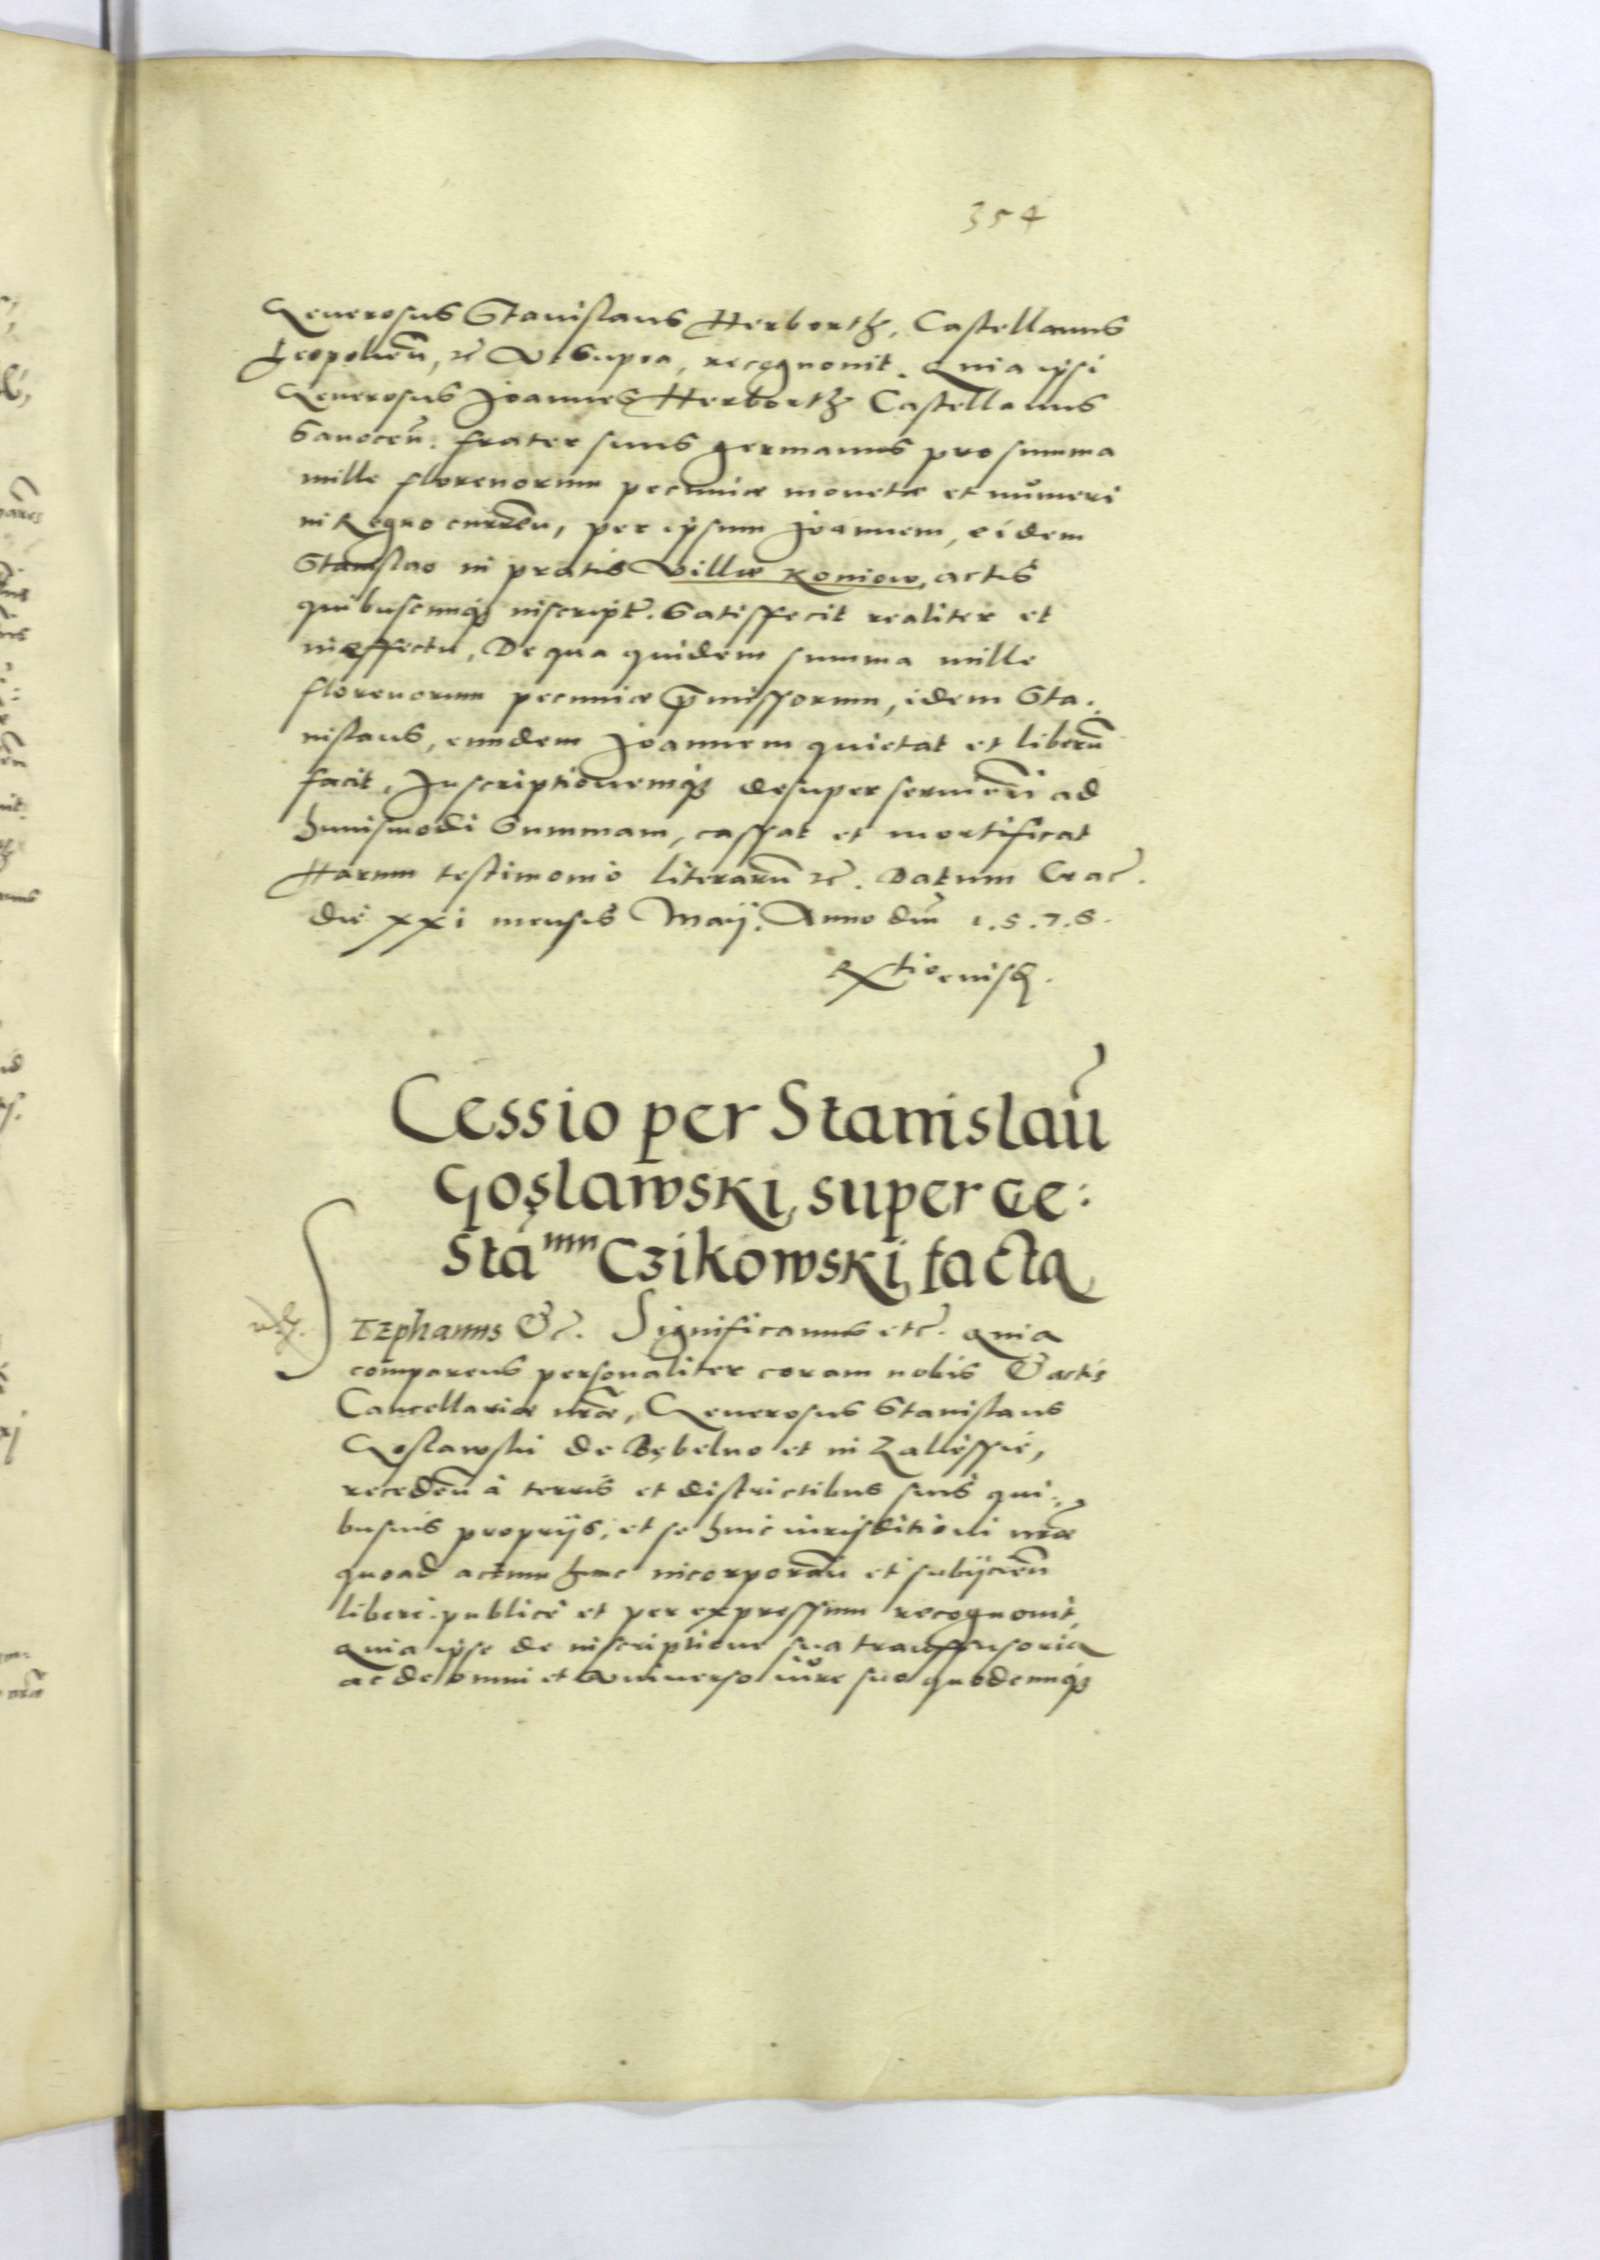 354
Generosus Stanislaus Herborth, Castellanus
Leopolien̄, etc̄ Ut supra, recognouit. Quia ipsi
Generosus Joannes Herborth Castellanus
Sanocen̄. frater suus germanus pro summa
mille florenorum pecuniæ monetæ et numeri
in Regno curren̄, per ipsum Joannem, eidem
Stanislao in pratis Villæ Koniow, actis
quibuscunq; inscript̄. Satisfecit realiter et
in effectu, De qua quidem summa mille
florenorum pecuniæ p̄missorum, idem Sta:
nislaus, eundem Joannem quietat et liberū
facit, Inscriptionemq; desuper seruien̄ ad
huiusmodi Summam, cassat et mortificat
Harum testimonio literarū etc̄. Datum Crac̄.
die xxi mensis Maij. Anno dni 1.5.7.8.
Cessio per Stanislaū
Goslawski, super Ge:
sta Czikowski, facta
Stephanus Etc̄. Significamus etc̄. Quia
comparens personaliter coram nobis Et actis
Cancellariæ nr̄æ, Generosus Stanislaus
Goslawski de Bębelno et in Zalessie,
receden̄ à terris et districtibus suis qui:
busuis proprijs, et se huic iurisditioni nr̄æ
quoad actum hunc incorporan̄ et subijcien̄
liberè publicè et per expressum recognouit,
Quia ipse de inscriptione sua transfusoria
ac de omni et Vniuerso iure suo quodcunq;